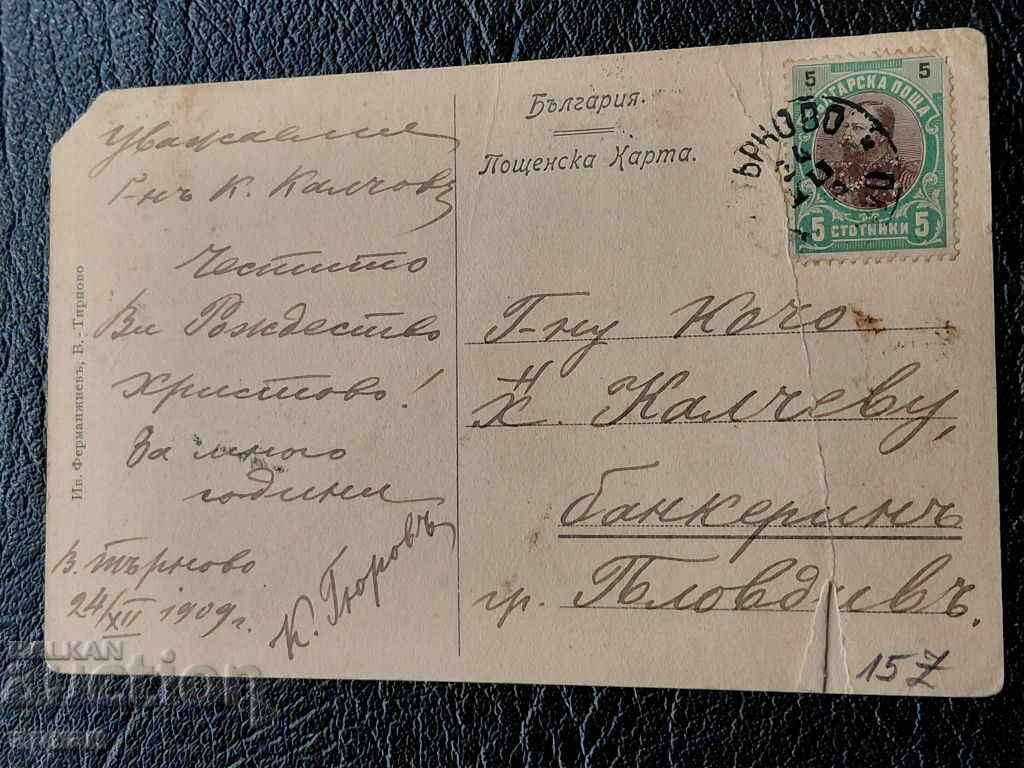 България.
Пощенска Карта.
5 5
БЪЛГАРСКА ПОЩА
5 СТОТИНКИ 5
ЪРНОВО
Уважаемие
Г-нъ К. Калчовъ
Честито
Ви Рождество
Христово!
За много
години
К. Гюровъ
В. Търново
24/XII 1909 г.
Г-ну Кочо
Х. Калчеву,
банкеринъ
гр. Пловдивъ.
Ив. Ферманжиевъ, В. Тѫрново
15 Z
BALKAN
auction